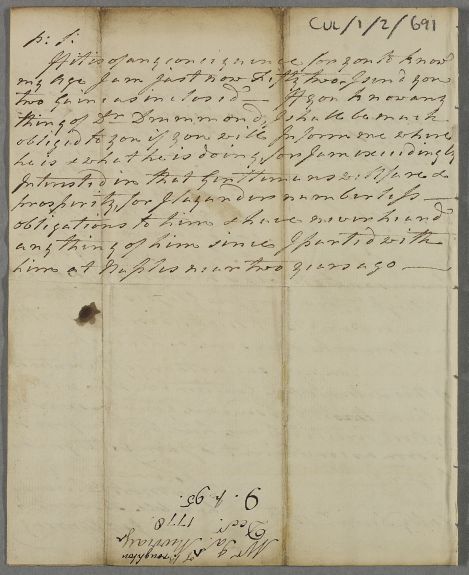 CUL/1/2/691
P: S:
If it is of any consequence for you to know
my Age I am just now Fifty two, I send you
two Guineas inclosed — If you know any
thing of Dr Drummond, I shall be much
obliged to you if you will Inform me where
he is & what he is doing, for I am exceedingly
Intrested in that Gentlemans wellfare &
prosperity, for I lay under numberless
obligations to him & have never heard
any thing of him since I parted with
him at Naples near two years ago —
9. p. 95.
Decr. 1778.